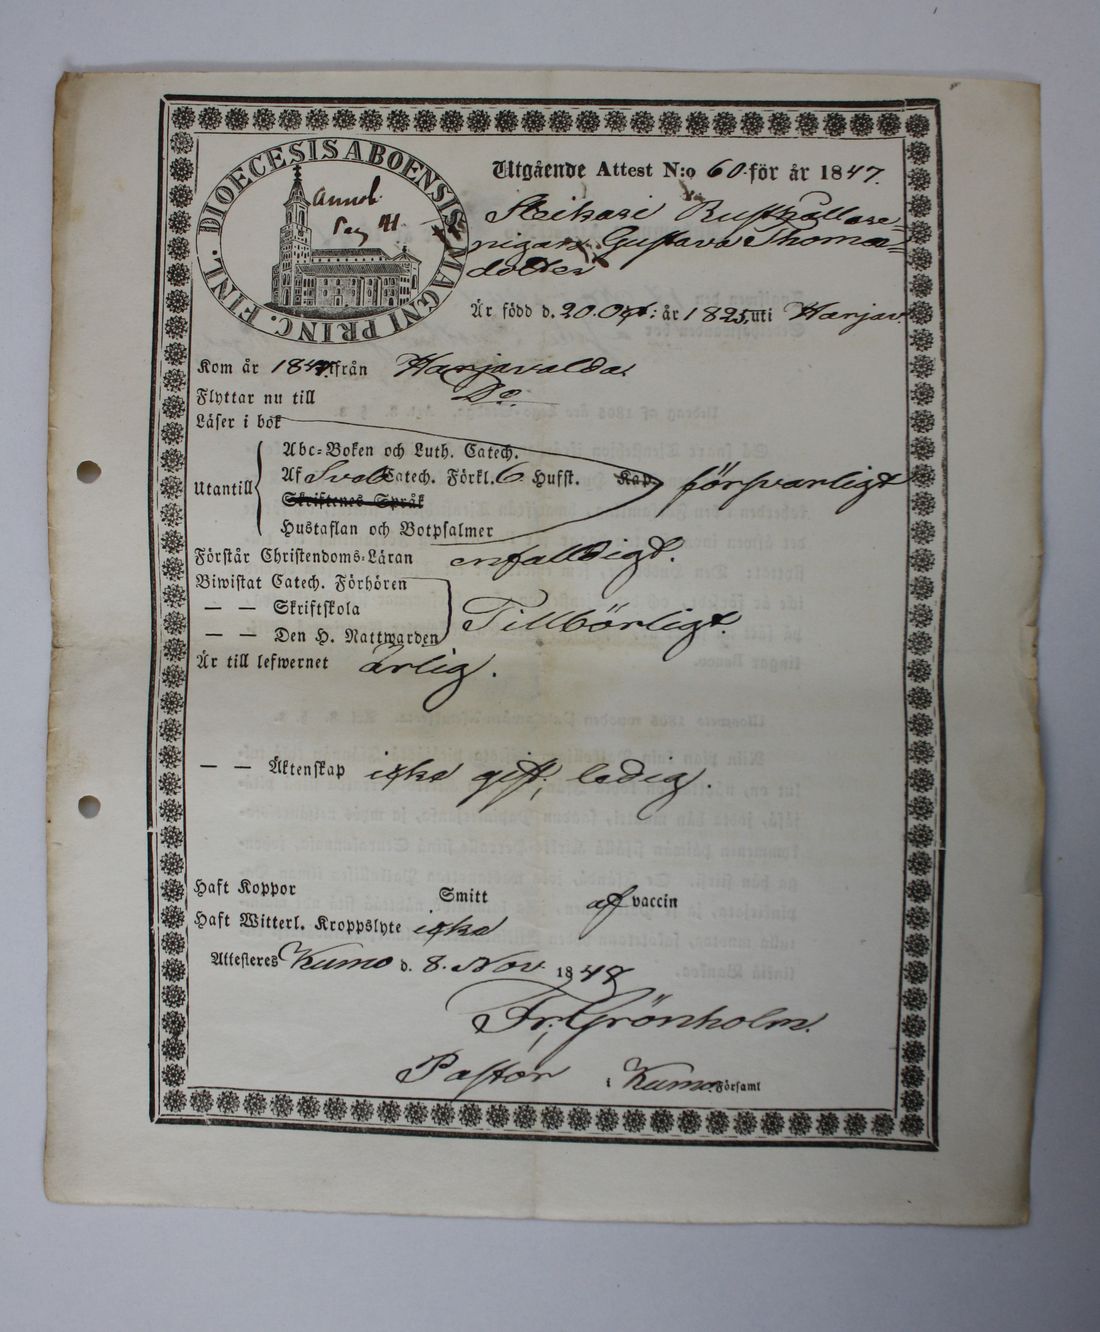 DIOECESIS ABOENSIS MAGNI PRINC. FINL.
Annot.
Pag 41.
Utgående Attest N:o 60. för år 1847.
Rusthållare
pigan Gustava Thomæ
dotter
Är född d. 20. Oct: år 1825, uti Harjav.
Kom år 184 från Harjavalda.
Flyttar nu till Do
Läser i bok
Utantill
Abc-Boken och Luth. Catech.
Af Sveb Catech. Förkl. 6 Hufst. Kap. försvarligt
Skriftenes Språk
Hustaflan och Botpsalmer
Förstår Christendoms-Läran enfalldigt.
Biwistat Catech. Förhören
— — Skriftskola
— — Den H. Nattwarden Tillbörligt.
Är till lefwernet ärlig.
— — Äktenskap icke gift, ledig.
Haft Koppor Smitt af vaccin
Haft Witterl. Kroppslyte icke
Attesteres Kumo d. 8. Nov. 184
Fr. Grönholm.
Pastor i Kumo Församl